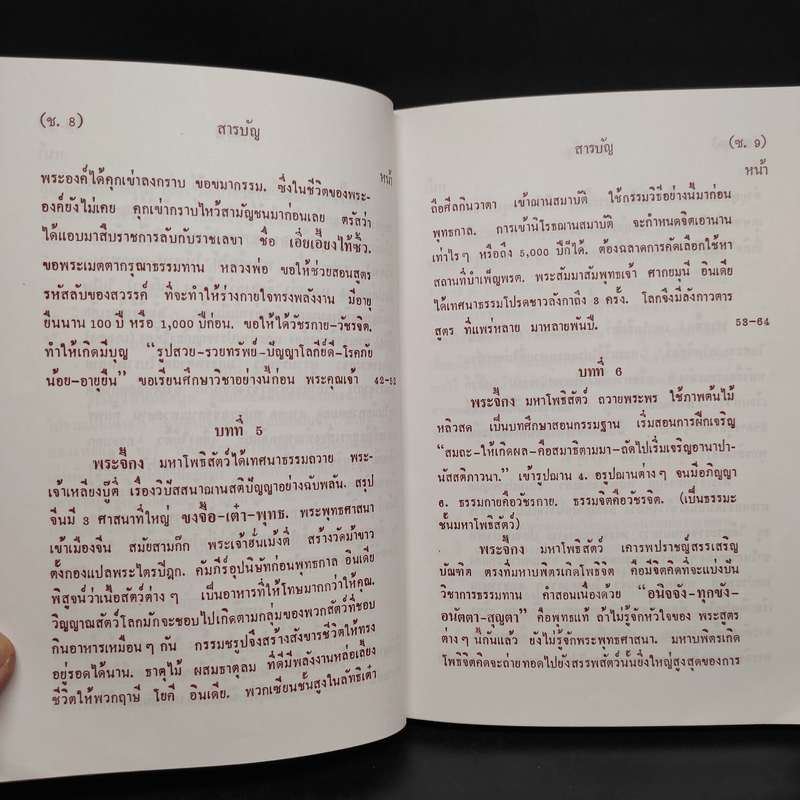 (ช. 8)
สารบัญ
หน้า
พระองค์ได้คุกเข่าลงกราบ ขอขมากรรม. ซึ่งในชีวิตของพระ-
องค์ยังไม่เคย คุกเข่ากราบไหว้สามัญชนมาก่อนเลย ตรัสว่า
ได้แอบมาสืบราชการลับกับราชเลขา ชื่อ เอี่ยเอี้ยงไท้ซิ้ว.
ขอพระเมตตากรุณาธรรมทาน หลวงพ่อ ขอให้ช่วยสอนสูตร
รหัสลับของสวรรค์ ที่จะทำให้ร่างกายใจทรงพลังงาน มีอายุ
ยืนนาน 100 ปี หรือ 1,000 ปีก่อน. ขอให้ได้วัชรกาย-วัชรจิต.
ทำให้เกิดมีบุญ "รูปสวย-รวยทรัพย์-ปัญญาโลกีย์ดี-โรคภัย
น้อย-อายุยืน" ขอเรียนศึกษาวิชาอย่างนี้ก่อน พระคุณเจ้า 42-52
บทที่ 5
พระจี้กง มหาโพธิสัตว์ได้เทศนาธรรมถวาย พระ-
เจ้าเหลียงบู๊ตี่ เรื่องวิปัสสนาฌานสติปัญญาอย่างฉับพลัน. สรุป
จีนมี 3 ศาสนาที่ใหญ่ ขงจื้อ-เต๋า-พุทธ. พระพุทธศาสนา
เข้าเมืองจีน สมัยสามก๊ก พระเจ้าฮั่นเม้งตี่ สร้างวัดม้าขาว
ตั้งกองแปลพระไตรปิฎก. คัมภีร์อุปนิษัทก่อนพุทธกาล อินเดีย
พิสูจน์ว่าเนื้อสัตว์ต่างๆ เป็นอาหารที่ให้โทษมากกว่าให้คุณ.
วิญญาณสัตว์โลกมักจะชอบไปเกิดตามกลุ่มของพวกสัตว์ที่ชอบ
กินอาหารเหมือนๆ กัน กรรมชรุปจึงสร้างสังขารชีวิตให้ทรง
อยู่รอดได้นาน. ธาตุไม้ ผสมธาตุลม ที่ดีมีพลังงานหล่อเลี้ยง
ชีวิตให้พวกฤาษี โยคี อินเดีย. พวกเซียนชั้นสูงในลัทธิเต๋า
(ช. 9)
สารบัญ
หน้า
ถือศีลกินวาตา เข้าฌานสมาบัติ ใช้กรรมวิธีอย่างนี้มาก่อน
พุทธกาล. การเข้านิโรธฌานสมาบัติ จะกำหนดจิตเอานาน
เท่าไรๆ หรือถึง 5,000 ปีก็ได้. ต้องฉลาดการคัดเลือกใช้หา
สถานที่บำเพ็ญพรต. พระสัมมาสัมพุทธเจ้า ศากยมุนี อินเดีย
ได้เทศนาธรรมโปรดชาวลังกาถึง 3 ครั้ง. โลกจึงมีลังกาวตาร
สูตร ที่แพร่หลาย มาหลายพันปี. 53-64
บทที่ 6
พระจี้กง มหาโพธิสัตว์ ถวายพระพร ใช้ภาพต้นไม้
หลิวสด เป็นบทศึกษาสอนกรรมฐาน เริ่มสอนการฝึกเจริญ
"สมถะ-ให้เกิดผล-คือสมาธิตามมา-ถัดไปเริ่มเจริญอานาปา-
นัสสติภาวนา." เข้ารูปฌาน 4. อรูปฌานต่างๆ จนมีอภิญญา
6. ธรรมกายคือวัชรกาย. ธรรมจิตคือวัชรจิต. (เป็นธรรมะ
ชั้นมหาโพธิสัตว์)
พระจี้กง มหาโพธิสัตว์ เคารพปราชญ์สรรเสริญ
บัณฑิต ตรงที่มหาบพิตรเกิดโพธิจิต คือมีจิตคิดที่จะแบ่งปัน
วิชาการธรรมทาน คำสอนเนื่องด้วย "อนิจจัง-ทุกขัง-
อนัตตา-สุญตา" คือพุทธแท้ ถ้าไม่รู้จักหัวใจของ พระสูตร
ต่างๆ นี้กันแล้ว ยังไม่รู้จักพระพุทธศาสนา. มหาบพิตรเกิด
โพธิจิตคิดจะถ่ายทอดไปยังสรรพสัตว์นั้นยิ่งใหญ่สูงสุดของการ